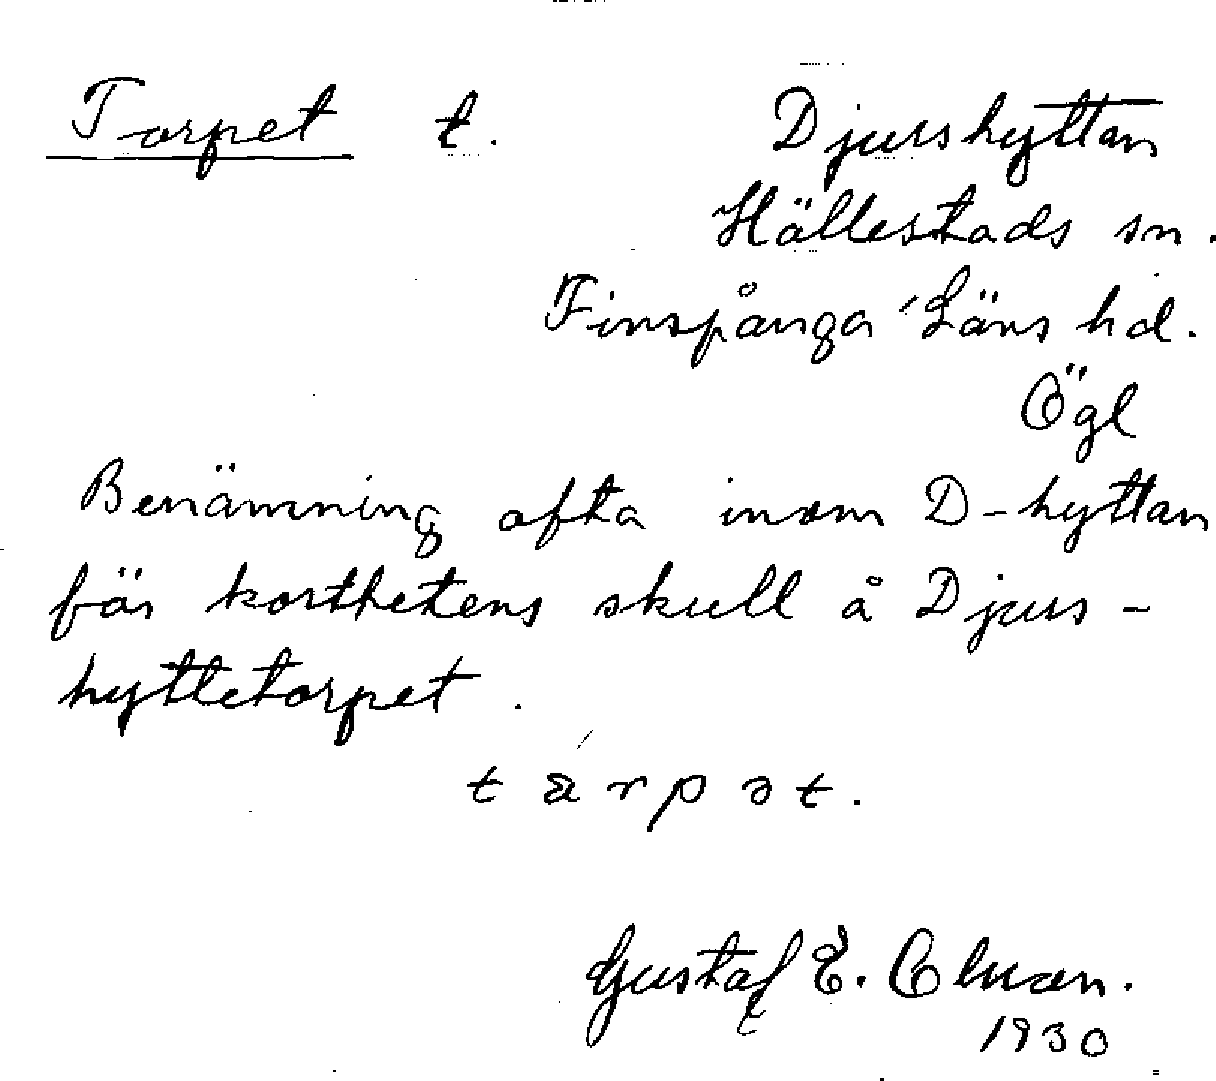 Torpet t. Djurshyttan
Hällestads sn.
Finspånga Läns hd.
Ögl
Benämning ofta inom D-hyttan
för korthetens skull å Djurs-
hyttetorpet.
tårpət.
Gustaf E.
1930